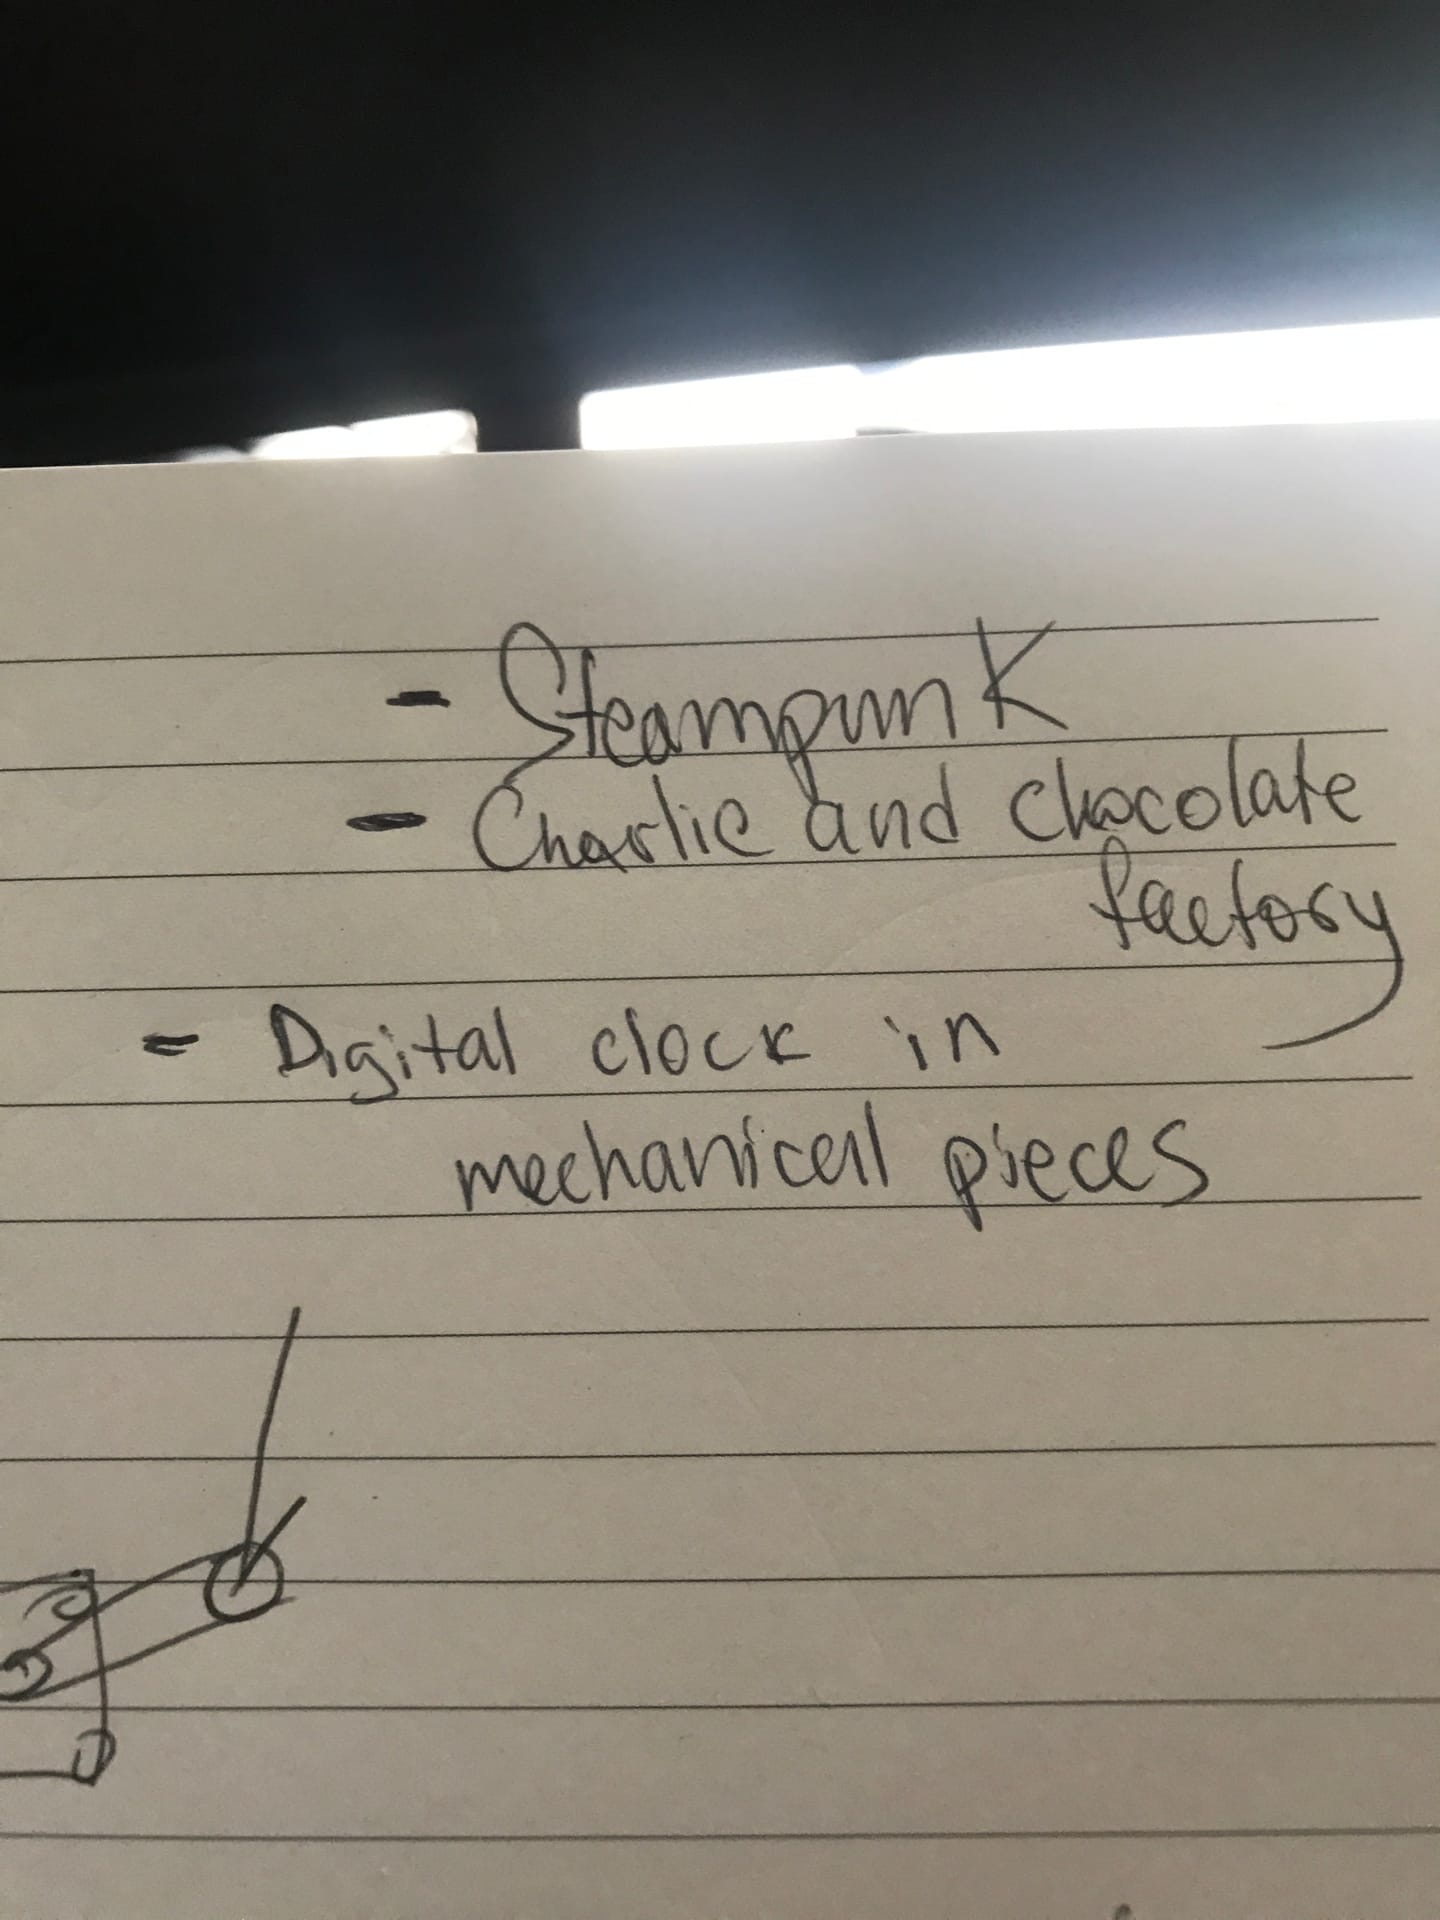 - Steampunk
- Charlie and chocolate
factory
= Digital clock in
mechanical pieces